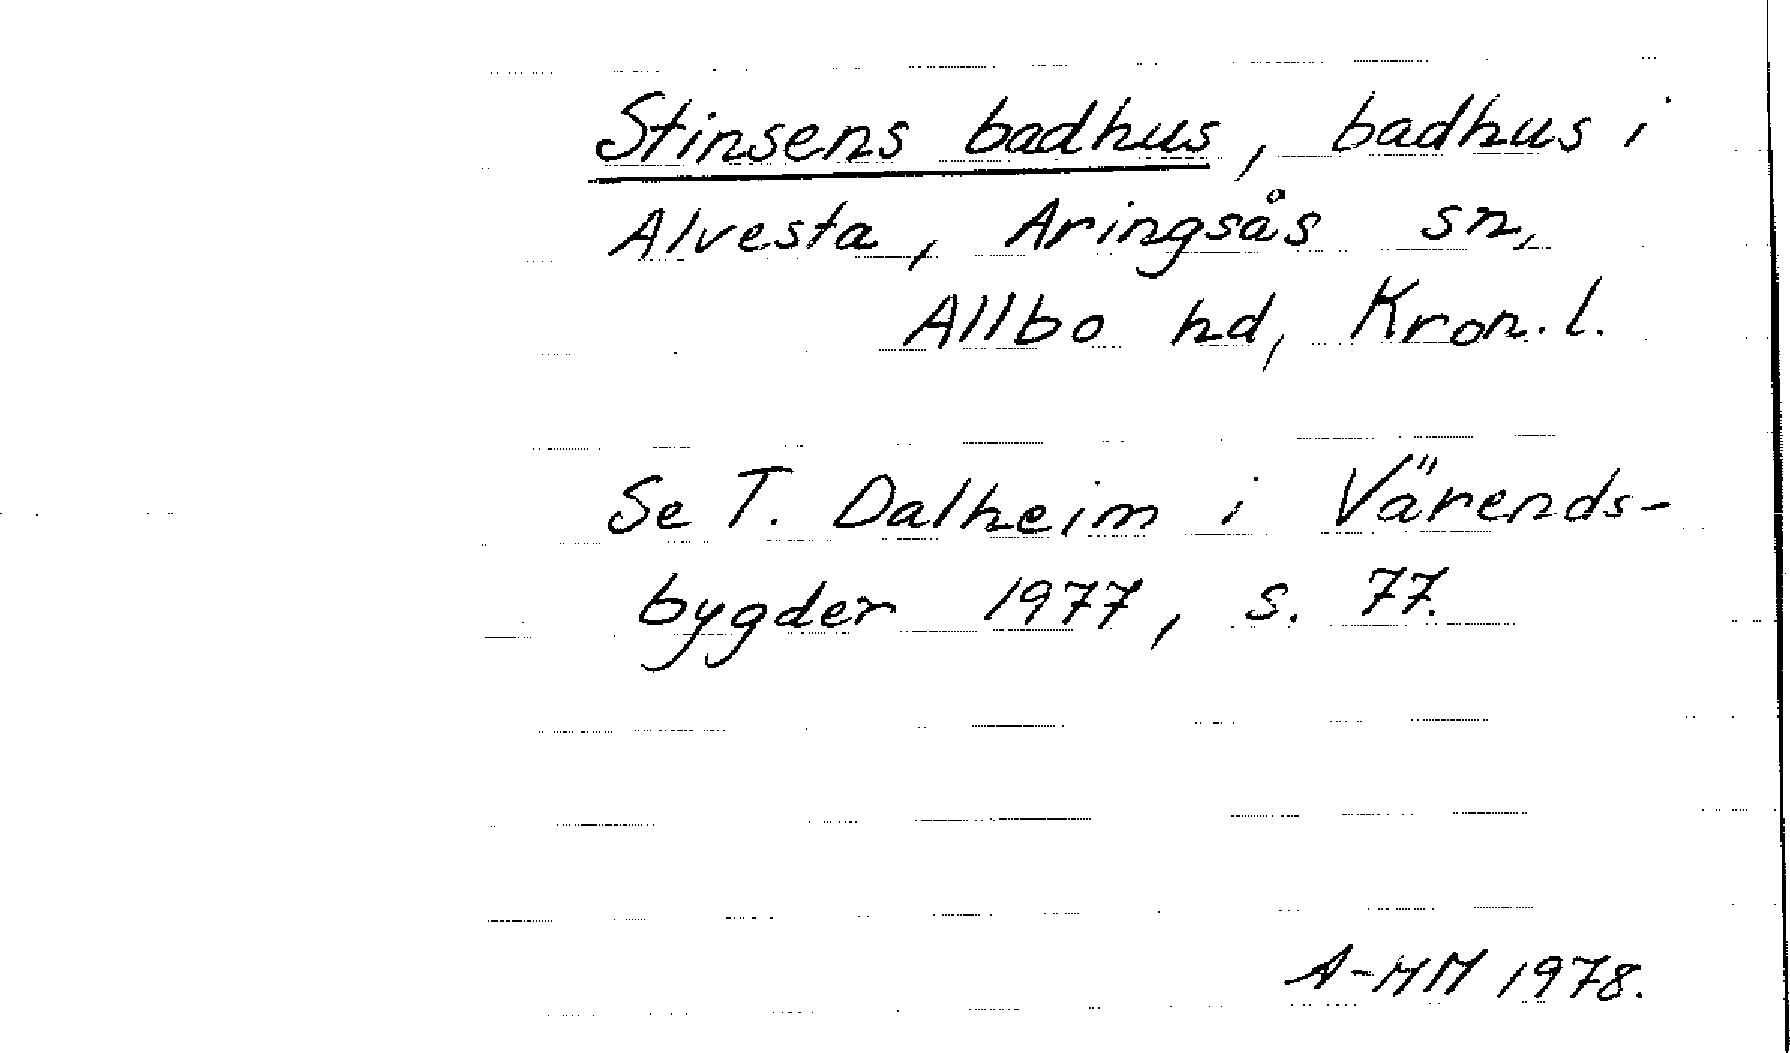 Stinsens badhus, badhus i
Alvesta, Aringsås sn,
Allbo hd, Kron. l.
Se T. Dalheim i Värends-
bygder 1977, s. 77.
A-MM 1978.